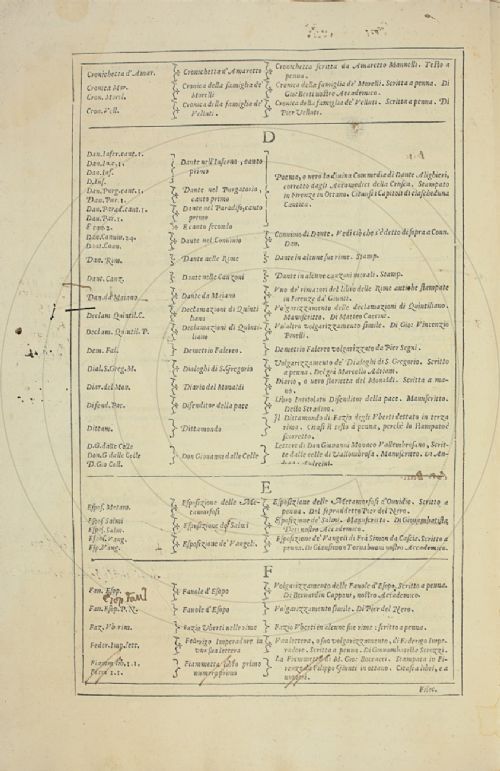 Cronichetta d'Amar. Cronichetta d'Amaretto Cronichetta scritta da Amaretto Mannelli. Testo a
penna.
Cronica Mor. Cronica della famiglia de' Cronica della famiglia de' Morelli. Scritta a penna. Di
Cron. Morel. Morelli nostro Accademico.
Cron. Vell. Cronica della famiglia de' Cronica della famiglia de' Velluti. Scritta a penna. Di
Velluti. Pier Velluti.
D
Dan. Infer. cant. 1.
Dan. Inf. 1.
Dan. Inf. Dante nell'Inferno, canto
D. Inf. primo
Dan. Purg. cant. 1. Dante nel Purgatoria, Poema, o vero la divina Commedia di Dante Alighieri,
Dan. Pur. 1. canto primo corretto dagli Accademici della Crusca. Stampato
Dan. Parad. cant. 1. Dante nel Paradiso, canto in Firenze in Ottavo. Citansi i Capitoli di ciascheduna
Dan. Par. 1. primo Cantica.
E canto secondo
Dan. Convin. 24. Dante nel Convinio Convivio di Dante. Vedi ciò che s'è detto di sopra a Conv.
Dant. Conv. Dan.
Dan. Rim. Dante nelle Rime Dante in alcune sue rime. Stamp.
Dant. Canz. Dante nelle Canzoni Dante in alcune canzoni morali. Stamp.
Dan. da Maiano Dante da Maiano Uno de' rimatori del Libro delle Rime antiche stampate
in Firenze da' Giunti.
Declam. Quintil. C. Declamazioni di Quinti- Volgarizzamento delle declamazioni di Quintiliano.
liano Manuscritto. Di Matteo Caccini.
Declam. Quintil. P. Declamazioni di Quinti- Un'altro volgarizzamento simile. Di Gio: Vincenzio
liano Pinelli.
Dem. Fal. Demetrio Falereo. Demetrio Falereo volgarizzato da Pier Segni.
Dial. S. Greg. M. Dialoghi di S. Gregorio Volgarizzamento de' Dialoghi di S. Gregorio. Scritto
a penna. Del già Marcello Adriani.
Diar. del Mon. Diario del Monaldi Diario, o vero storietta del Monaldi. Scritta a ma-
no.
Difend. Pac. Difenditor della pace Libro Intitolato Difenditor della pace. Manuscritto.
Dello Stradino.
Dittam. Dittamondo Il Dittamondo di Fazio degli Uberti dettato in terza
rima. Citasi il testo a penna, perchè lo stampato è
scorretto.
D. G. dalle Celle Lettere di Don Giovanni Monaco Vallembrosano, Scrit-
Don. G. dalle Celle Don Giovanni dalle Celle te dalle celle di Vallombrosa. Manuscritto. Di An-
D. Gio. Cell.
E
Espos. Metamo. Esposizione delle Me- Esposizione delle Metamorfosi d'Ovvidio. Scritto a
tamorfosi penna. Del soprannetto Pier del Nero.
Espos. Salmi Esposizione de' Salmi Esposizione de' Salmi. Manuscritta. Di Giovambatista
Espos. Salm. Deti nostro Accademico.
Espos. Vang. Esposizione de' Vangeli. Esposizione de' Vangeli di Fra Simon da Cascia. Scritto a
Esp. Vang. penna. Di Giansimon Tornabuoni nostro Accademico.
F
Fav. Esop. Favole d'Esopo Volgarizzamento delle Favole d'Esopo. Scritto a penna.
Di Bernardin Capponi, nostro Accademico.
Fav. Esop. P. N. Favole d'Esopo Volgarizzamento simile. Di Pier del Nero.
Faz. Ub. rim. Fazio Uberti nelle rime Fazio Uberti in alcune sue rime: scritto a penna.
Feder. Imp. lett. Federigo Imperadore in Una lettera, o suo volgarizzamento, di Federigo Impe-
una sua lettera radore. Scritta a penna. Di Giovambatista Strozzi.
Fiamm. lib. 1. 1. Fiammetta libro primo La Fiammetta di M. Gio: Boccacci. Stampata in Fi-
Fiam. 1. 1. num. primo renze da Filippo Giunti in ottavo. Citasi a libri, e a
numeri.